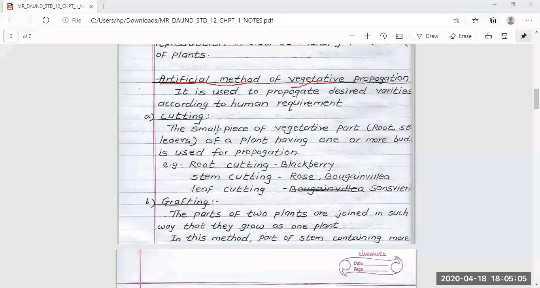 MR_DAUND_STD_12_CHPT_1_N
File C:/Users/hp/Downloads/MR_DAUND_STD_12_CHPT_1_NOTES.pdf
Draw Erase
of plants.
Artificial method of vegetative propagation
It is used to propagate desired varities
according to human requirement
a) Cutting:
The small piece of vegetative part (Root, st
leaves) of a plant having one or more bud
is used for propagation
e.g. Root cutting - Blackberry
stem cutting - Rose, Bougainvillea
leaf cutting - Bougainvillea Sansvier
b) Grafting:-
The parts of two plants are joined in such
way that they grow as one plant
In this method, part of stem containing more
classmate
Date
Page
2020-04-18 18:05:05